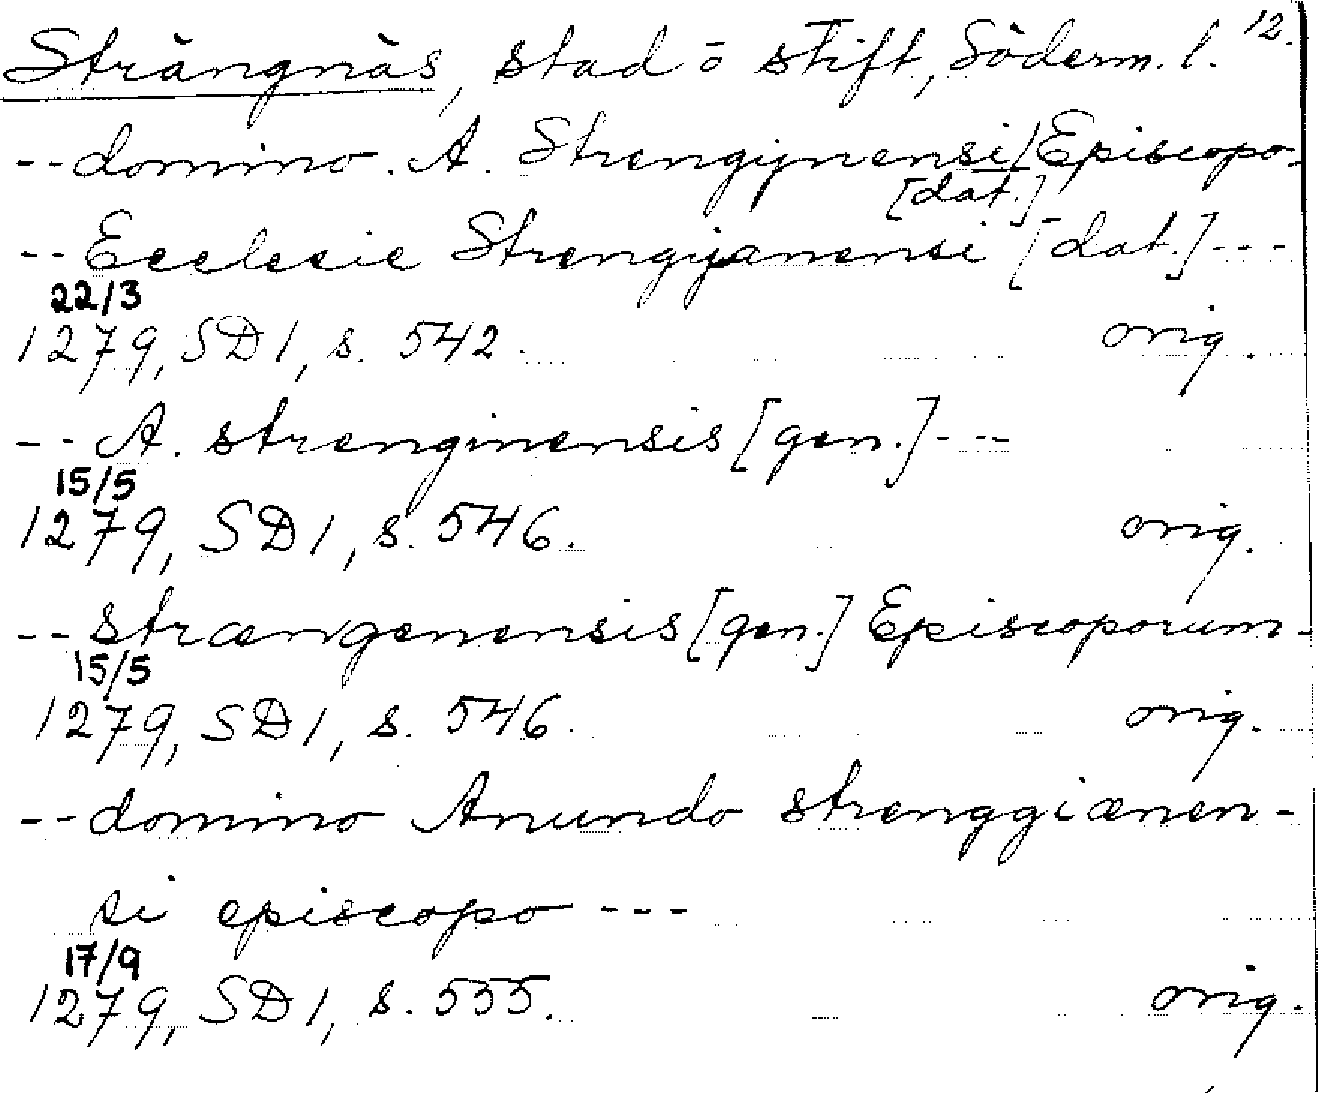 Strängnäs, stad o stift, Söderm. l. 12.
-- domino . A. Strengynensi/Episcopo-
[dat.]
-- Ecclesie Strengyanensi [dat.] ---
22/3
1279, SD1, s. 542. orig.
-- A. strenginensis [gen.] ---
15/5
1279, SD1, s. 546. orig.
-- strængenensis [gen.] Episcoporum-
15/5
1279, SD1, s. 546. orig.
-- domino Anundo strenggiænen-
si episcopo ---
17/9
1279, SD1, s. 555. orig.